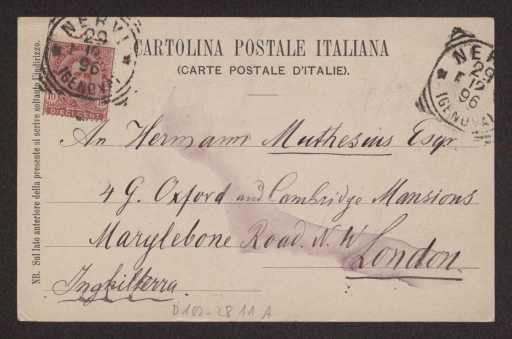 NERVI
29
12
96
(GENOVA)
NER
29
12
96
(GENOVA)
CARTOLINA POSTALE ITALIANA
(CARTE POSTALE D'ITALIE).
An Hermann Muthesius Esqr
4 G. Oxford and Cambridge Mansions
Marylebone Road. N. W
London.
Inghilterra.
NB. Sul lato anteriore della presente si scrive soltanto l'indirizzo.
D102-2811 A